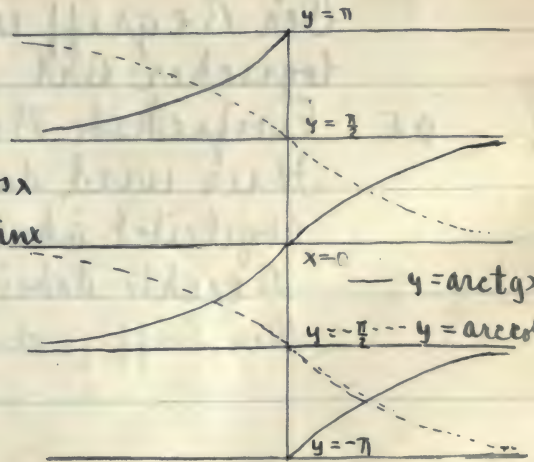 y = π
y = π/2
x=0
— y = arctgx
y = -π/2 --- y = arcco
y = -π